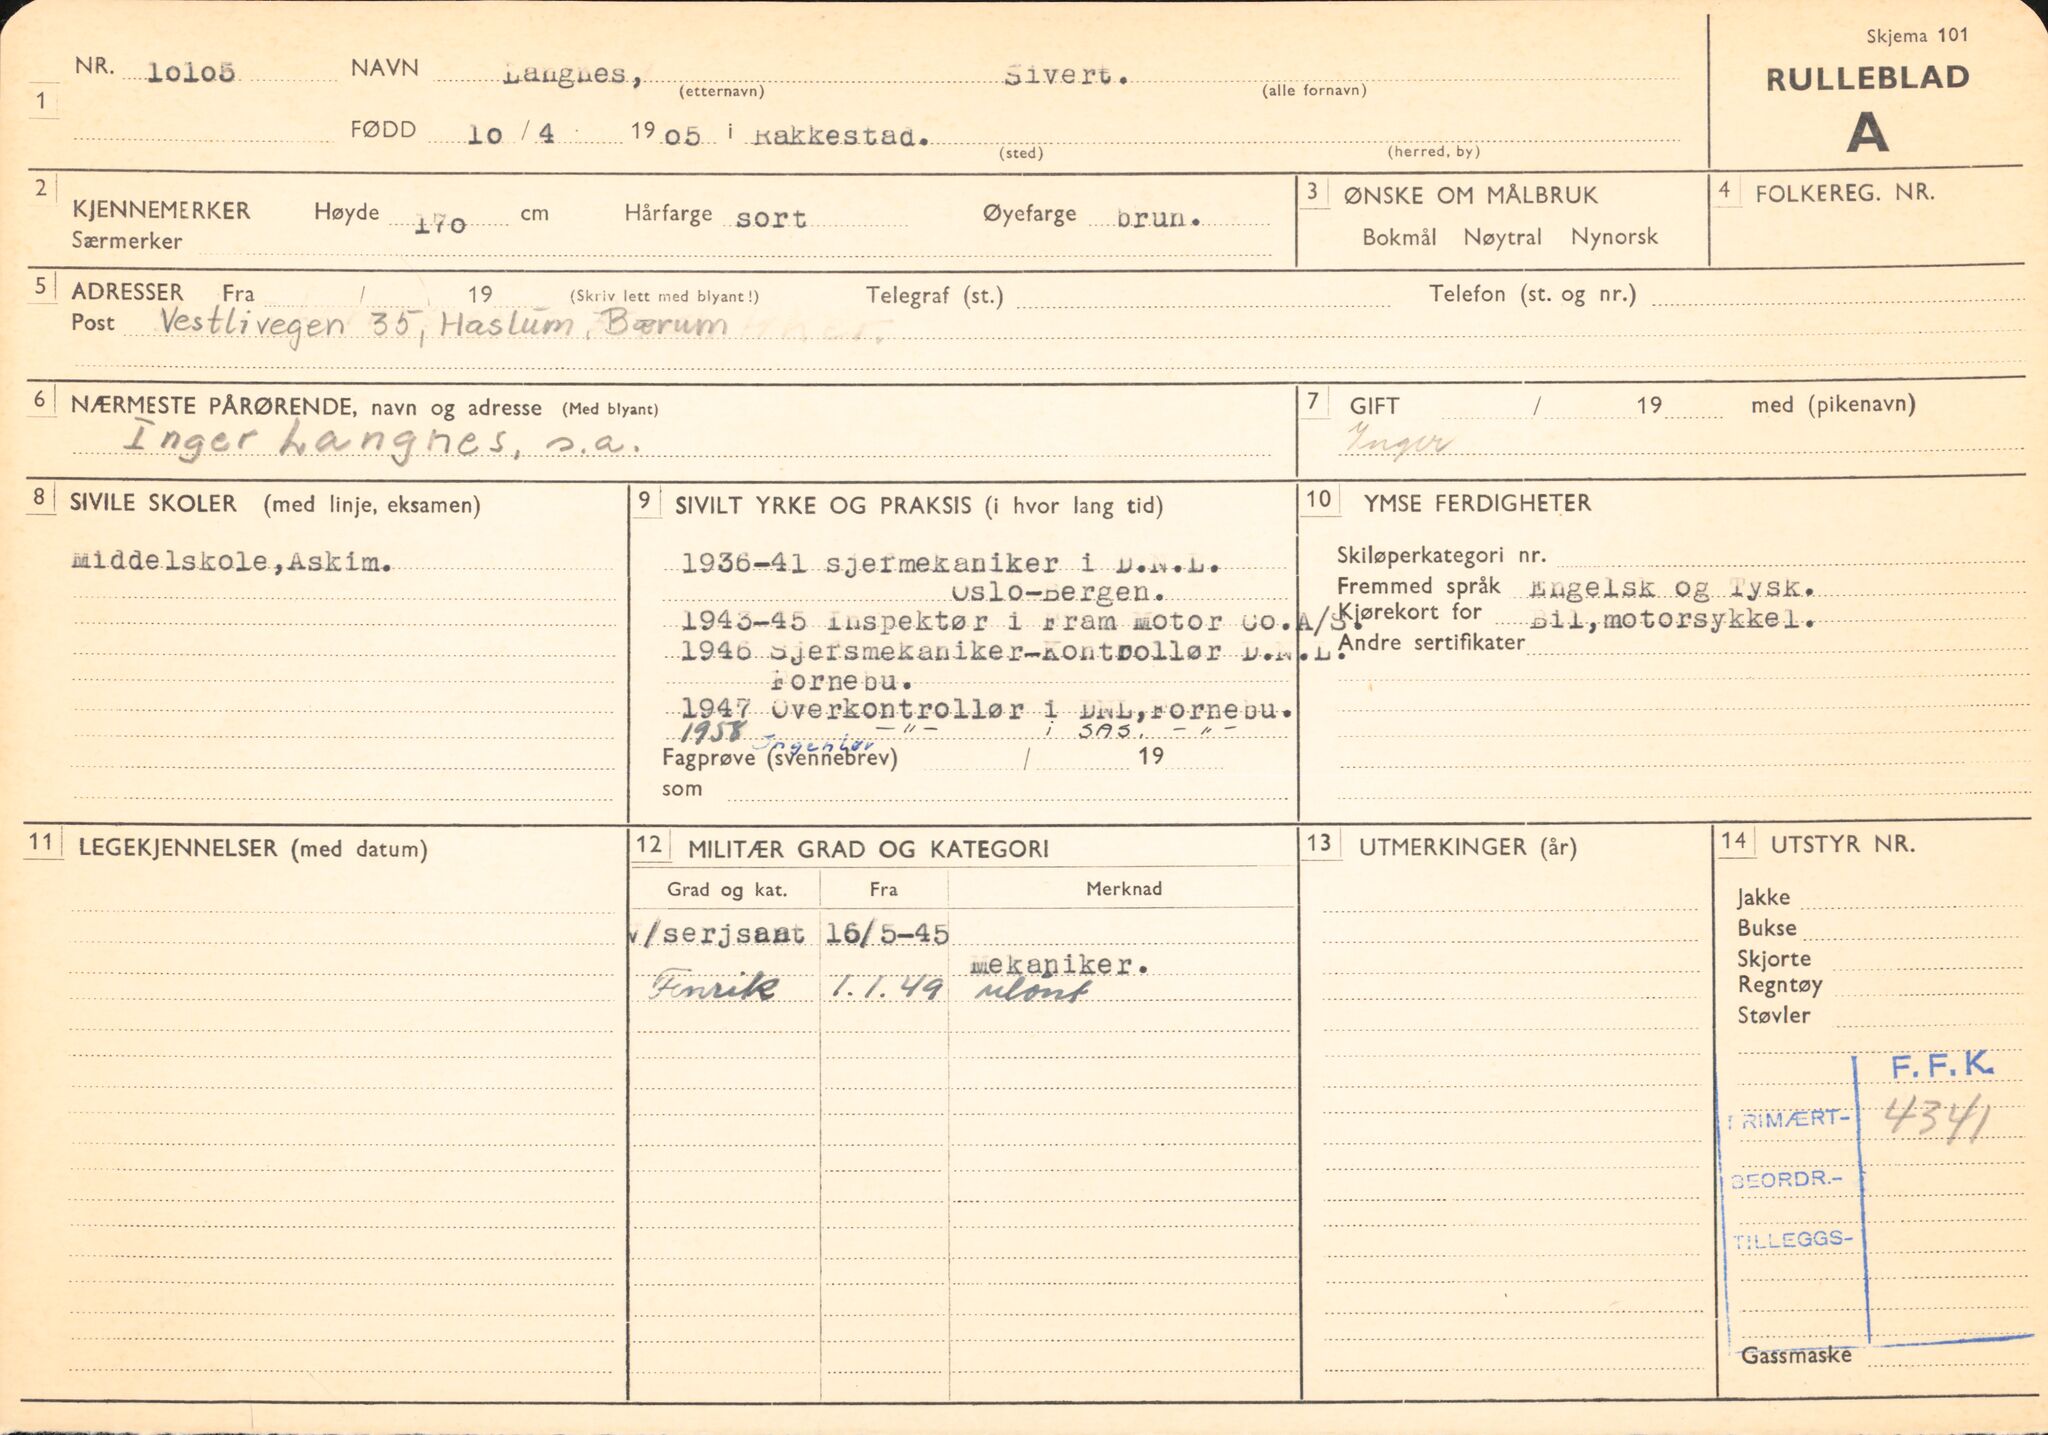 Skjema 101
RULLEBLAD
A
1 NR. 10105 NAVN Langnes, Sivert.
(etternavn) (alle fornavn)
FØDD 10 / 4 1905 i Rakkestad.
(sted) (herred, by)
2 KJENNEMERKER Høyde 170 cm Hårfarge sort Øyefarge brun.
Særmerker
3 ØNSKE OM MÅLBRUK
Bokmål Nøytral Nynorsk
4 FOLKEREG. NR.
5 ADRESSER Fra / 19 (Skriv lett med blyant!) Telegraf (st.) Telefon (st. og nr.)
Post Vestlivegen 35, Haslum, Bærum
6 NÆRMESTE PÅRØRENDE, navn og adresse (Med blyant)
Inger Langnes, s.a.
7 GIFT / 19 med (pikenavn)
Inger
8 SIVILE SKOLER (med linje, eksamen)
Middelskole, Askim.
9 SIVILT YRKE OG PRAKSIS (i hvor lang tid)
1936-41 sjefmekaniker i D.N.L.
Oslo-Bergen.
1943-45 Inspektør i Fram Motor Co.A/S.
1946 Sjefsmekaniker-Kontrollør D.N.L.
Fornebu.
1947 Overkontrollør i DNL, Fornebu.
1958 -"- i SAS. -"-
Ingeniør
Fagprøve (svennebrev) / 19
som
10 YMSE FERDIGHETER
Skiløperkategori nr.
Fremmed språk Engelsk og Tysk.
Kjørekort for Bil, motorsykkel.
Andre sertifikater
11 LEGEKJENNELSER (med datum)
12 MILITÆR GRAD OG KATEGORI
Grad og kat. Fra Merknad
v/serjsant 16/5-45
Mekaniker.
Fenrik 1.1.49
13 UTMERKINGER (år)
14 UTSTYR NR.
Jakke
Bukse
Skjorte
Regntøy
Støvler
F. F. K.
PRIMÆRT- 4341
BEORDR.-
TILLEGGS-
Gassmaske